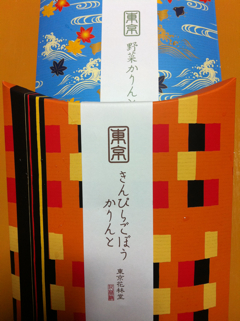 東京
野菜かりんと
東京
きんぴらごぼう
かりんと
東京花林堂